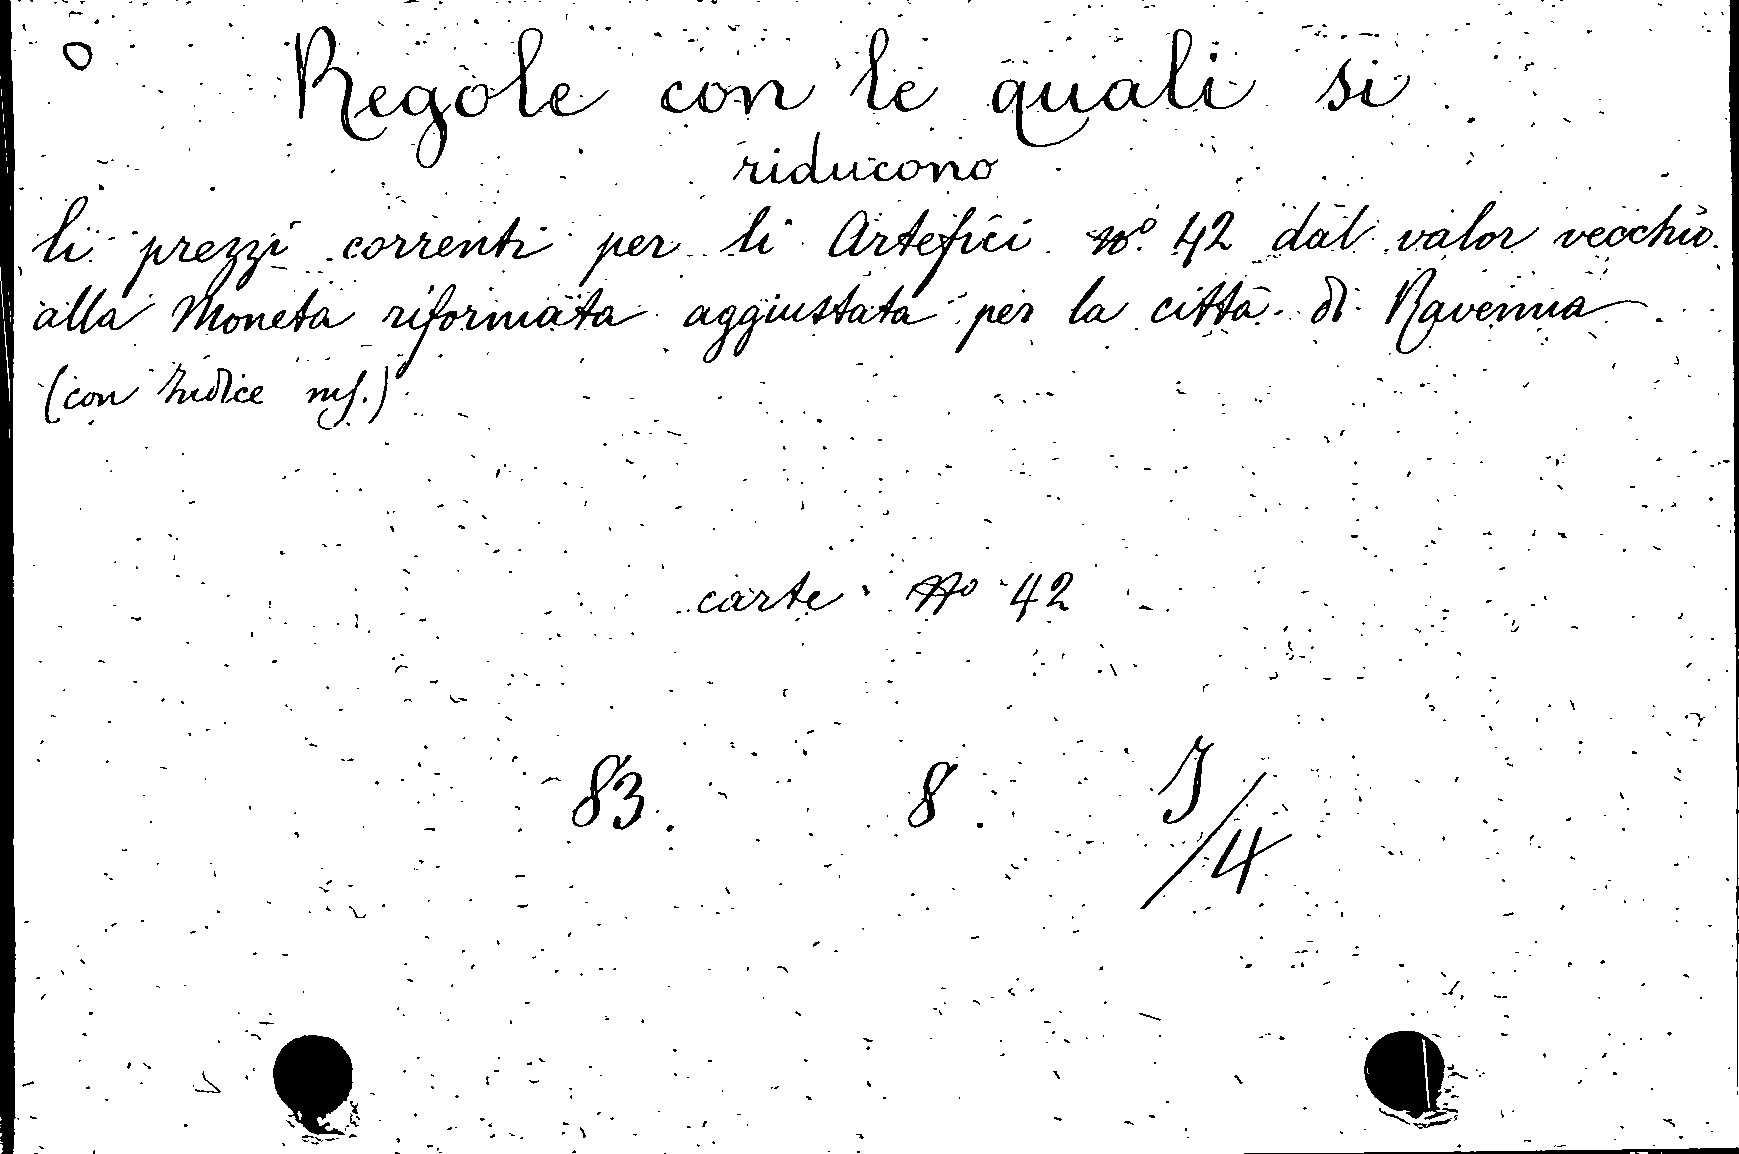 O
Regole con le quali si
riducono
li prezzi correnti per li Artefici no. 42 dal valor vecchio
alla Moneta riformata aggiustata per la città di Ravenna
(con Indice ms.)
carte No 42
83. 8 J/4